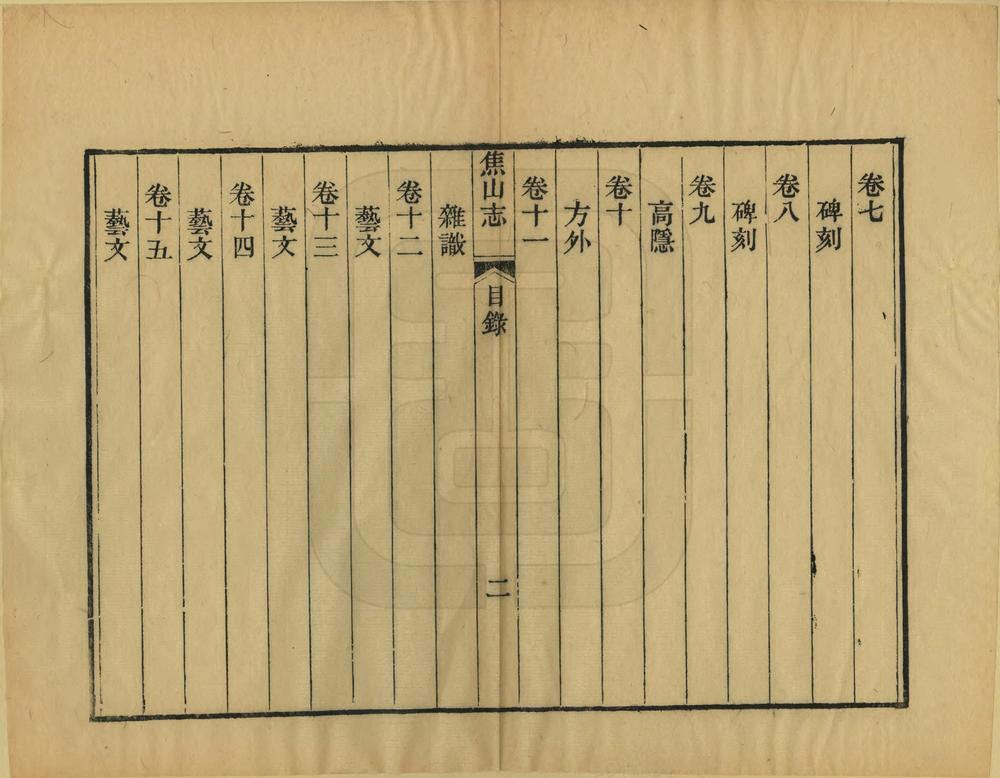 卷七
碑刻
卷八
碑刻
卷九
高隱
卷十
方外
卷十一
焦山志
目錄
二
雜識
卷十二
藝文
卷十三
藝文
卷十四
藝文
卷十五
藝文